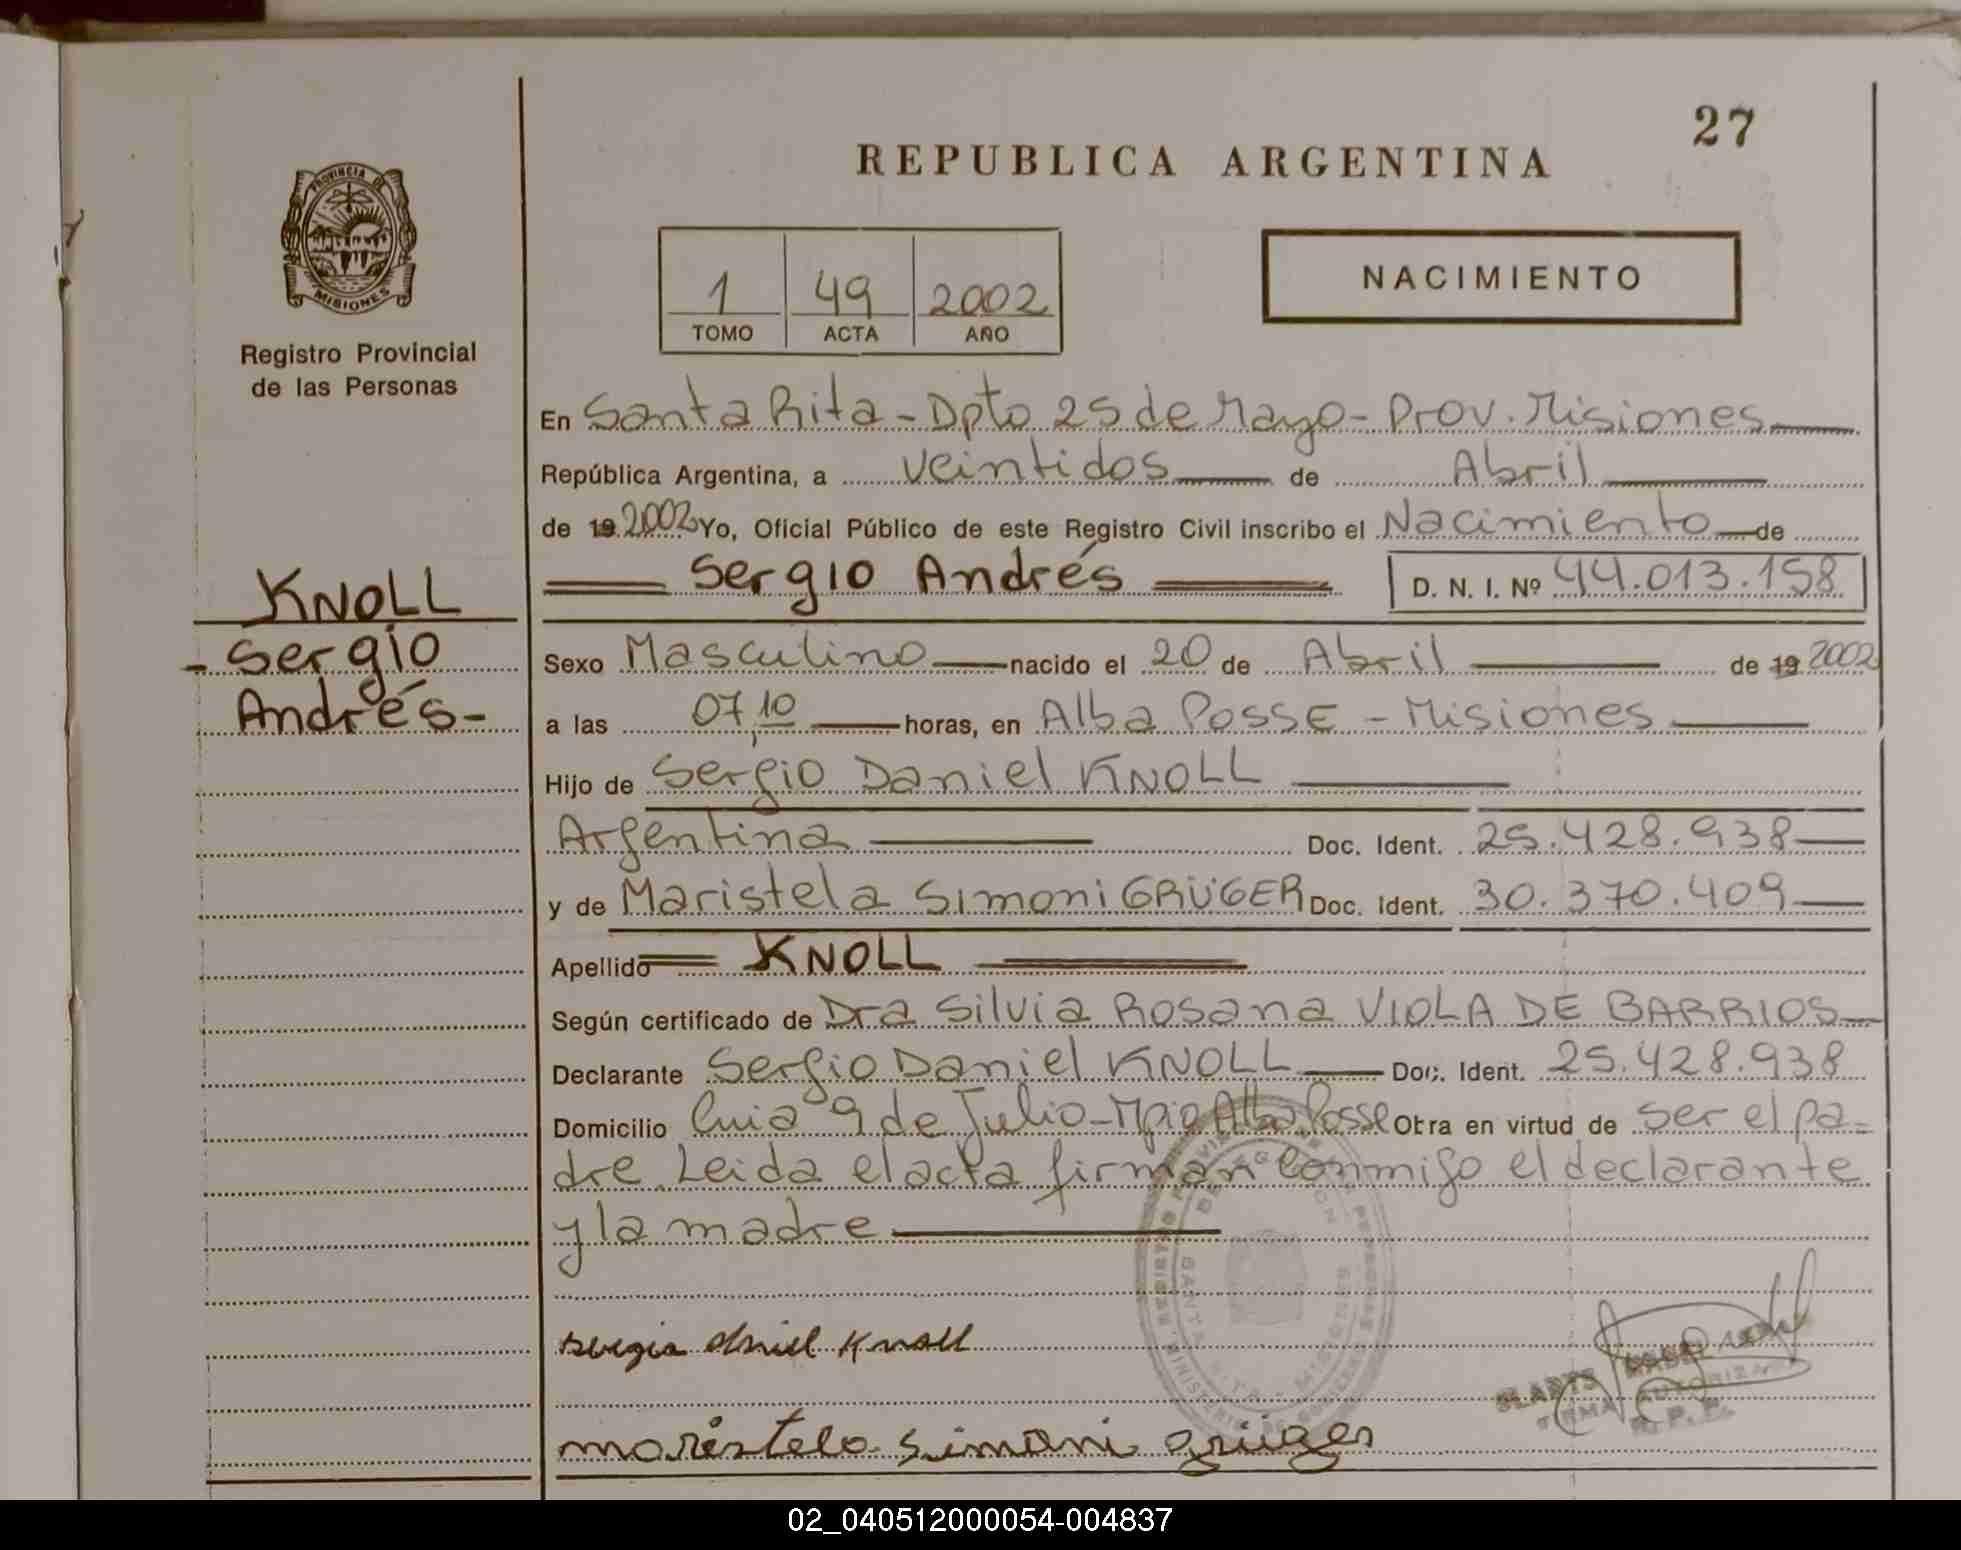 27
REPUBLICA ARGENTINA
PROVINCIA DE
MISIONES
Registro Provincial
de las Personas
1 49 2002
TOMO ACTA AÑO
NACIMIENTO
En Santa Rita - Dpto 25 de Mayo - Prov. Misiones
República Argentina, a veintidos de Abril
de 19 2002 Yo, Oficial Público de este Registro Civil inscribo el Nacimiento de
Sergio Andrés D. N. I. Nº 44.013.158
KNOLL
Sergio
Andrés-
Sexo Masculino nacido el 20 de Abril de 19 2002
a las 07,10 horas, en Alba Posse - Misiones
Hijo de Sergio Daniel KNOLL
Argentina Doc. Ident. 25.428.938
y de Maristela Simoni GRÜGER Doc. Ident. 30.370.409
Apellido KNOLL
Según certificado de Dra Silvia Rosana VIOLA DE BARRIOS
Declarante Sergio Daniel KNOLL Doc. Ident. 25.428.938
Domicilio 9 de Julio - Mpio Alba Posse Otra en virtud de ser el pa-
dre. Leida el acta firman conmigo el declarante
y la madre
sergio daniel Knoll
maristela simoni grüger
FIRMA AUTORIZA
R. P. P.
02_040512000054-004837